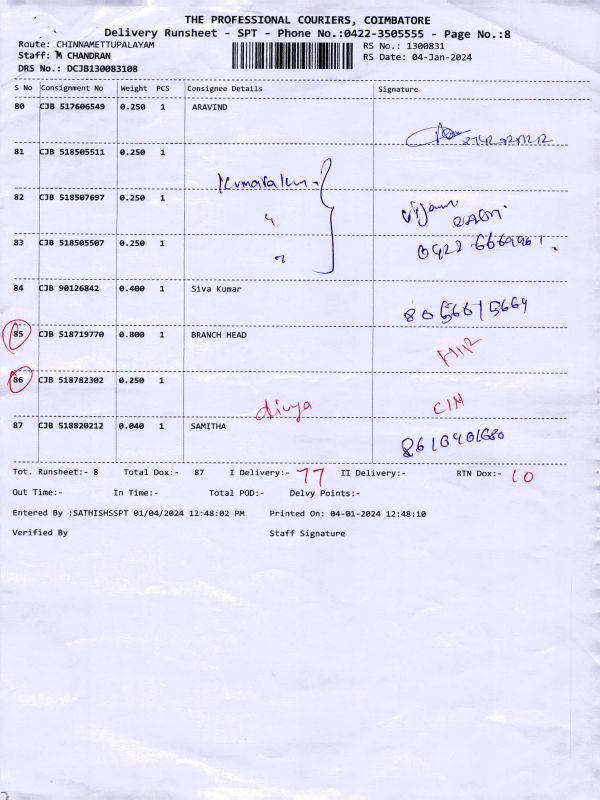 THE PROFESSIONAL COURIERS, COIMBATORE
Delivery Runsheet - SPT - Phone No.:0422-3505555 - Page No.:8
Route: CHINNAMETTUPALAYAM RS No.: 1300831
Staff: M CHANDRAN RS Date: 04-Jan-2024
DRS No.: DCJB130083108
S No Consignment No Weight PCS Consignee Details Signature
80 CJB 517606549 0.250 1 ARAVIND
81 CJB 518505511 0.250 1
82 CJB 518507697 0.250 1
83 CJB 518505507 0.250 1
84 CJB 90126842 0.400 1 Siva Kumar
85 CJB 518719770 0.800 1 BRANCH HEAD
86 CJB 518782302 0.250 1 divya
87 CJB 518820212 0.040 1 SAMITHA
Tot. Runsheet:- 8 Total Dox:- 87 I Delivery:- 77 II Delivery:- RTN Dox:- 10
Out Time:- In Time:- Total POD:- Delvy Points:-
Entered By :SATHISHSSPT 01/04/2024 12:48:02 PM Printed On: 04-01-2024 12:48:10
Verified By Staff Signature